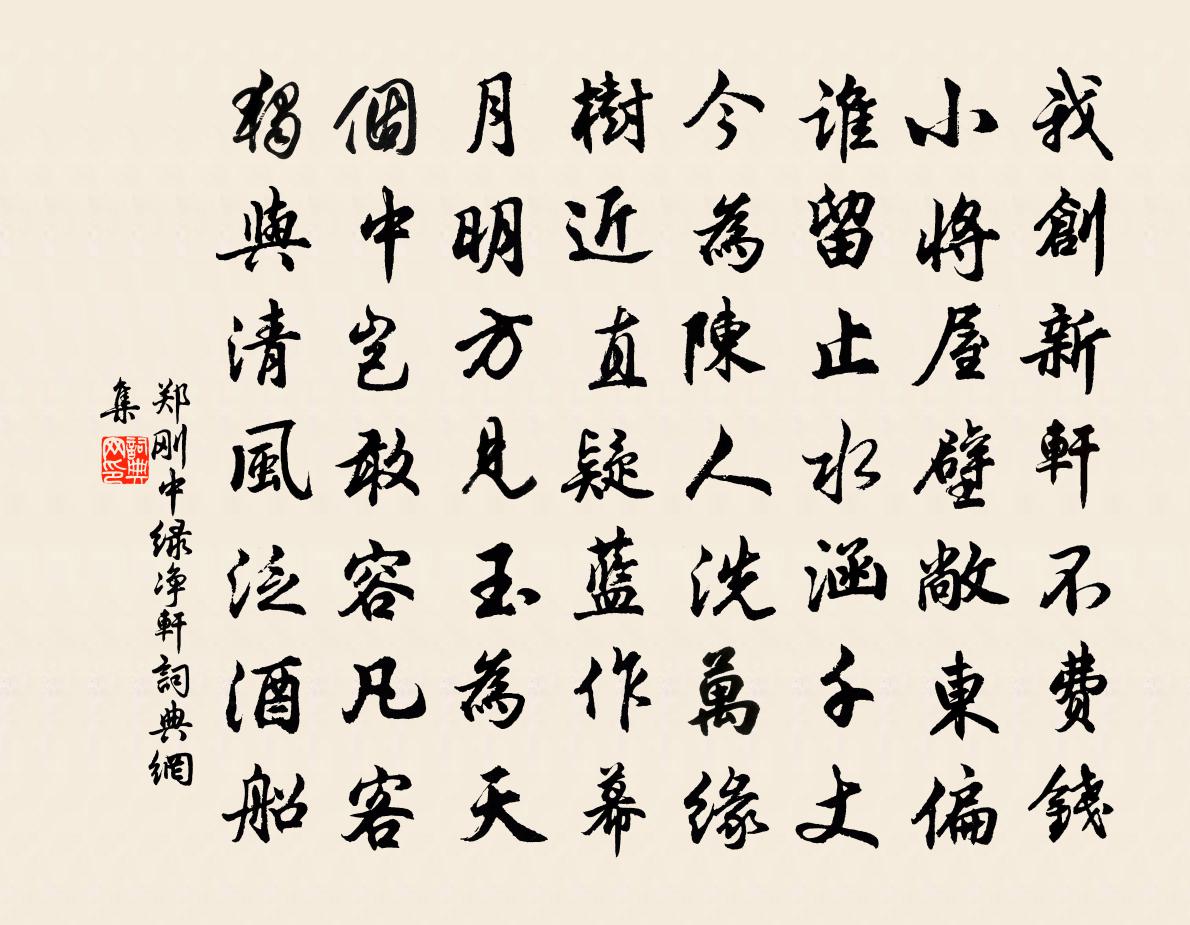 我創新軒不費錢
小將屋壁敞東偏
誰留止水涵千丈
今為陳人洗萬緣
樹近直疑藍作幕
月明方見玉為天
個中豈敢容凡客
獨與清風泛酒船
郑刚中绿净軒詞典網
集
詞典網印